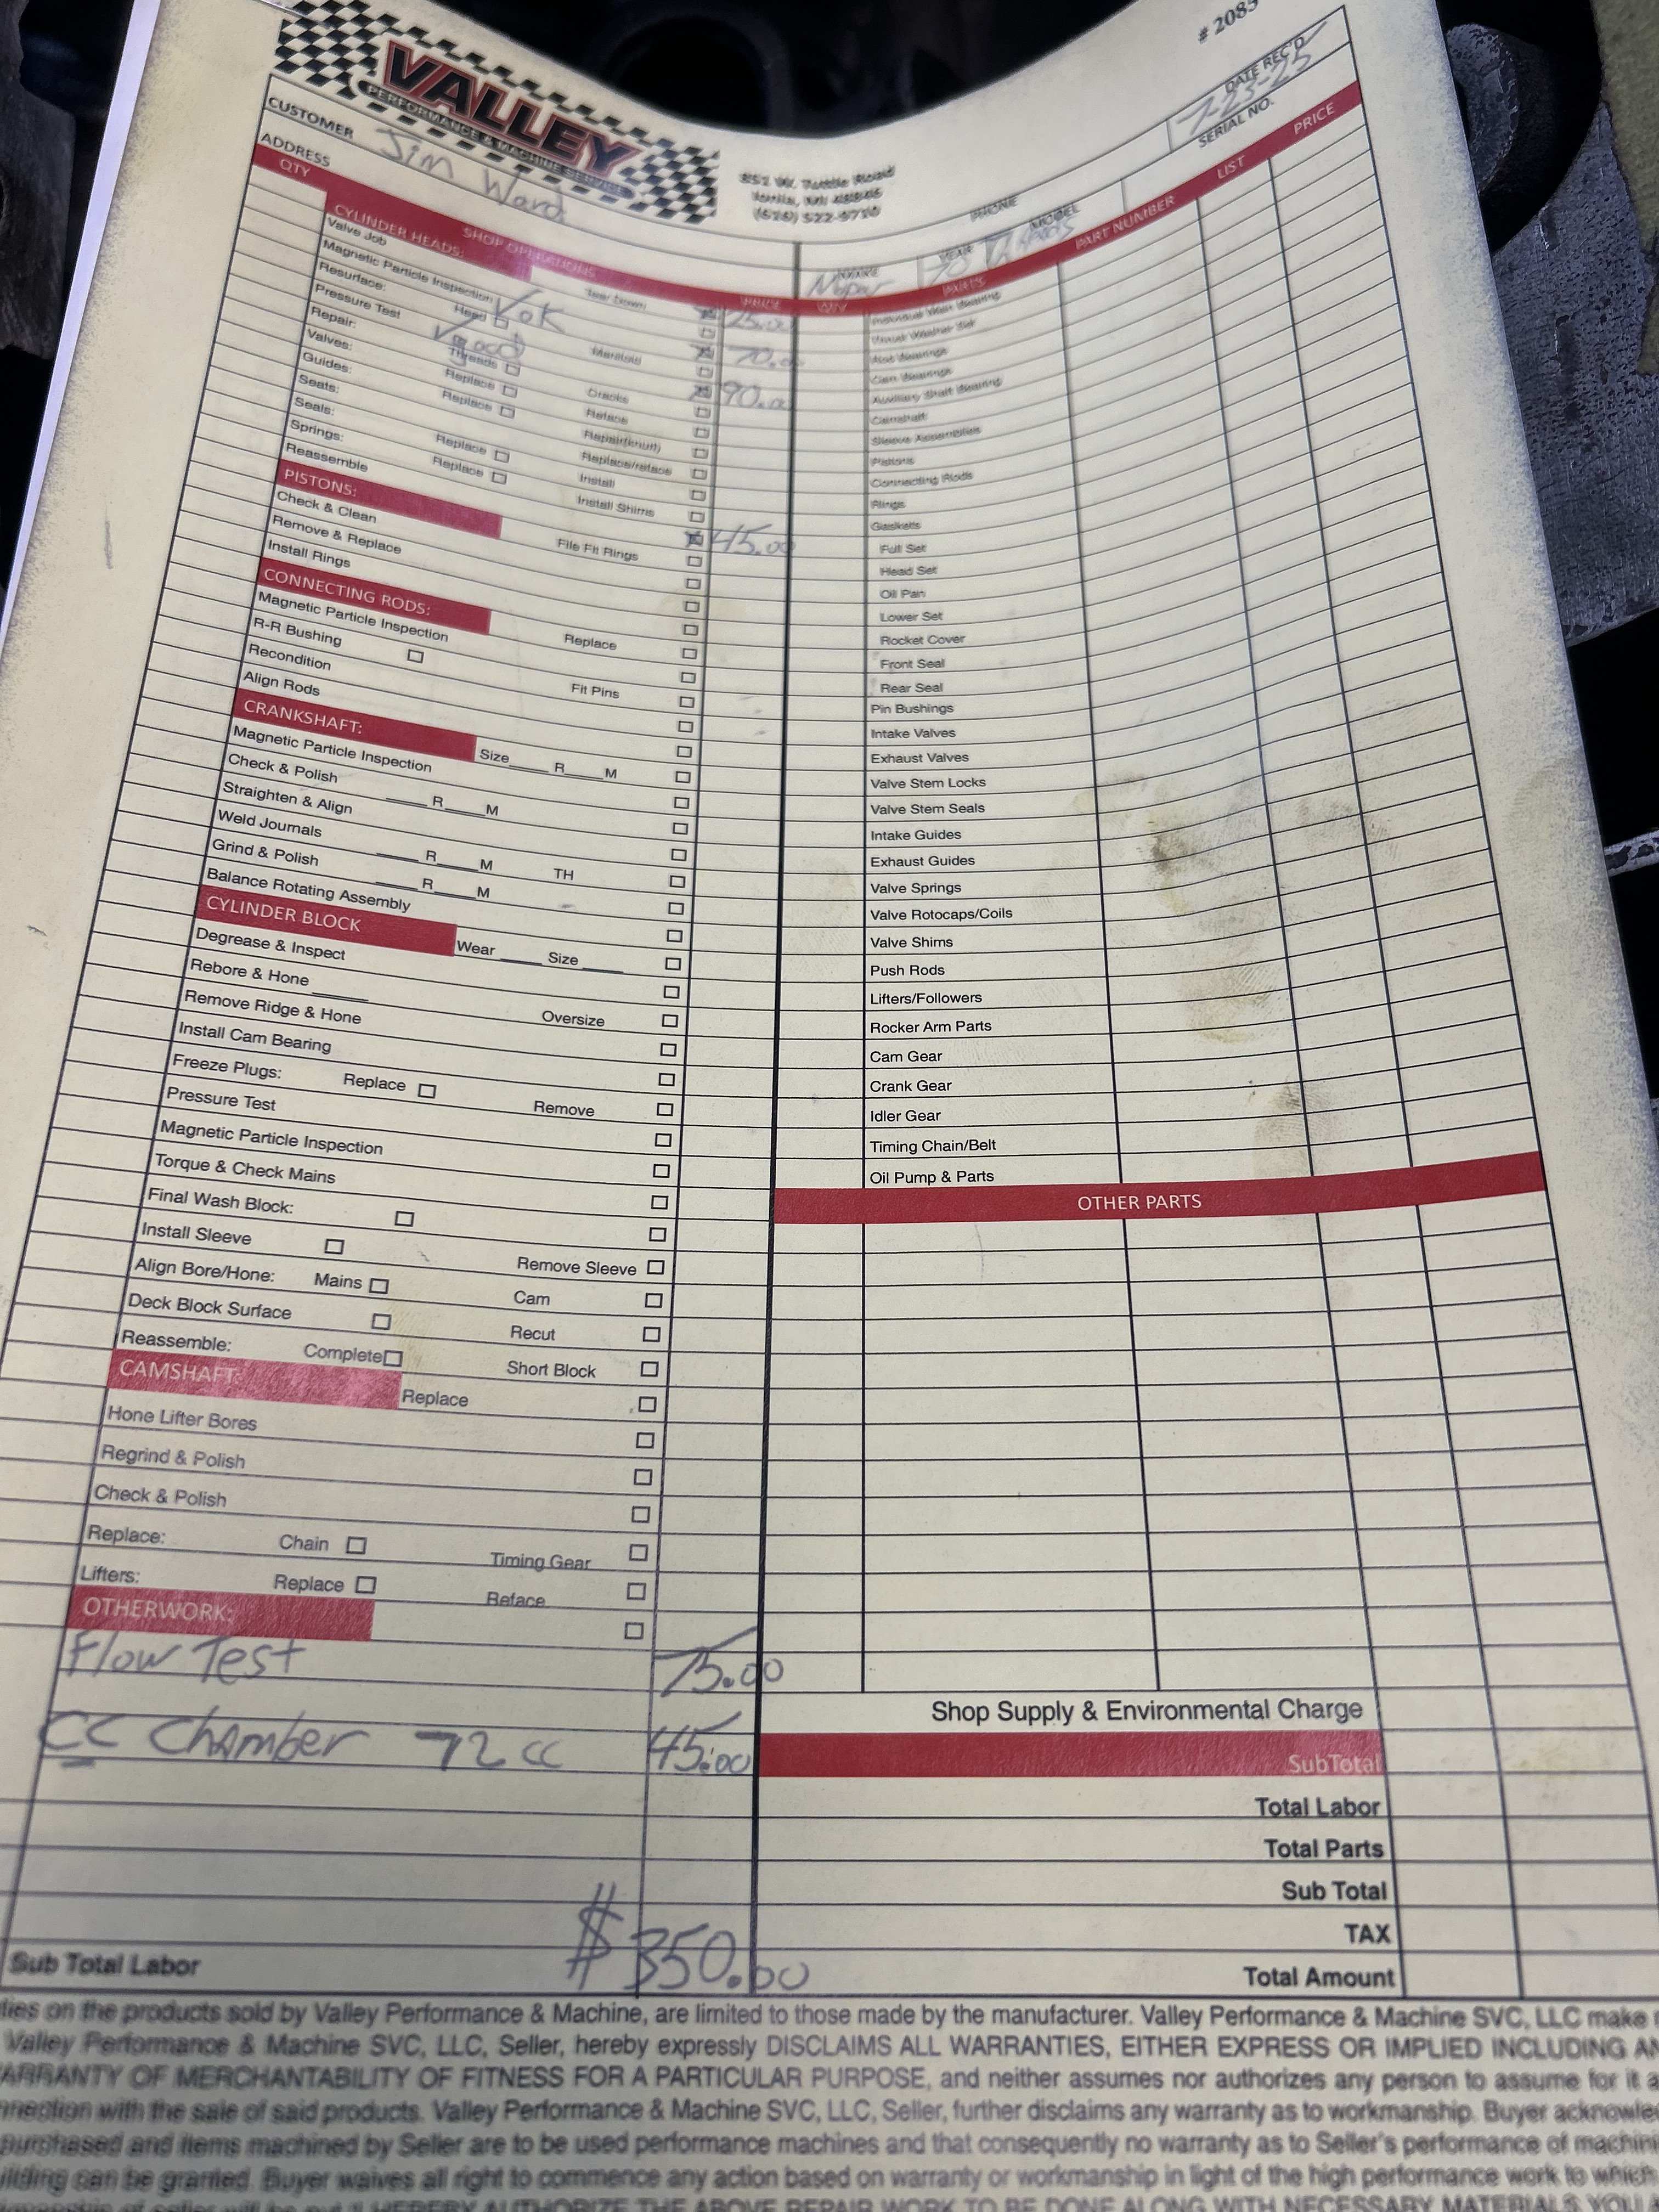 # 2085
VALLEY
PERFORMANCE & MACHINE SERVICE
851 W. Tuttle Road
Ionia, MI 48846
(616) 522-9710
DATE REC'D
7-23-25
SERIAL NO.
CUSTOMER Jim Ward
ADDRESS
PHONE
NAME Mopar
YEAR 70
MODEL
QTY SHOP OPERATIONS PRICE QTY PARTS PART NUMBER LIST PRICE
CYLINDER HEADS: Tear Down 25.00
Valve Job
Magnetic Particle Inspection ✓ OK 70.00
Resurface: Head Manifold
Pressure Test ✓ good 90.00
Repair: Threads Cracks
Valves: Replace Reface
Guides: Replace Repair(knurl)
Seats: Replace/reface
Seals: Replace Install
Springs: Replace Install Shims
Reassemble 45.00
PISTONS: File Fit Rings
Check & Clean
Remove & Replace
Install Rings
CONNECTING RODS: Replace
Magnetic Particle Inspection
R-R Bushing Fit Pins
Recondition
Align Rods
CRANKSHAFT: Size____ R____ M
Magnetic Particle Inspection
Check & Polish ____ R____ M
Straighten & Align
Weld Journals ____ R____ M TH
Grind & Polish ____ R____ M
Balance Rotating Assembly
CYLINDER BLOCK Wear ____ Size ____
Degrease & Inspect
Rebore & Hone ____ Oversize
Remove Ridge & Hone
Install Cam Bearing
Freeze Plugs: Replace Remove
Pressure Test
Magnetic Particle Inspection
Torque & Check Mains
Final Wash Block:
Install Sleeve Remove Sleeve
Align Bore/Hone: Mains Cam
Deck Block Surface Recut
Reassemble: Complete Short Block
CAMSHAFT: Replace
Hone Lifter Bores
Regrind & Polish
Check & Polish
Replace: Chain Timing Gear
Lifters: Replace Reface
OTHERWORK:
Flow Test 75.00
CC Chamber 72cc 45.00
Sub Total Labor $350.00
Thrust Washer Set
Rod Bearings
Cam Bearings
Auxiliary Shaft Bearing
Camshaft
Sleeve Assemblies
Pistons
Connecting Rods
Rings
Gaskets
Full Set
Head Set
Oil Pan
Lower Set
Rocket Cover
Front Seal
Rear Seal
Pin Bushings
Intake Valves
Exhaust Valves
Valve Stem Locks
Valve Stem Seals
Intake Guides
Exhaust Guides
Valve Springs
Valve Rotocaps/Coils
Valve Shims
Push Rods
Lifters/Followers
Rocker Arm Parts
Cam Gear
Crank Gear
Idler Gear
Timing Chain/Belt
Oil Pump & Parts
OTHER PARTS
Shop Supply & Environmental Charge
SubTotal
Total Labor
Total Parts
Sub Total
TAX
Total Amount
ties on the products sold by Valley Performance & Machine, are limited to those made by the manufacturer. Valley Performance & Machine SVC, LLC make
Valley Performance & Machine SVC, LLC, Seller, hereby expressly DISCLAIMS ALL WARRANTIES, EITHER EXPRESS OR IMPLIED INCLUDING
ARRANTY OF MERCHANTABILITY OF FITNESS FOR A PARTICULAR PURPOSE, and neither assumes nor authorizes any person to assume for it
nnection with the sale of said products. Valley Performance & Machine SVC, LLC, Seller, further disclaims any warranty as to workmanship. Buyer
purchased and items machined by Seller are to be used performance machines and that consequently no warranty as to Seller's performance of
ilding can be granted. Buyer waives all right to commence any action based on warranty or workmanship in light of the high performance work to which
I HEREBY AUTHORIZE THE ABOVE REPAIR WORK TO BE DONE ALONG WITH NECESSARY MATERIALS